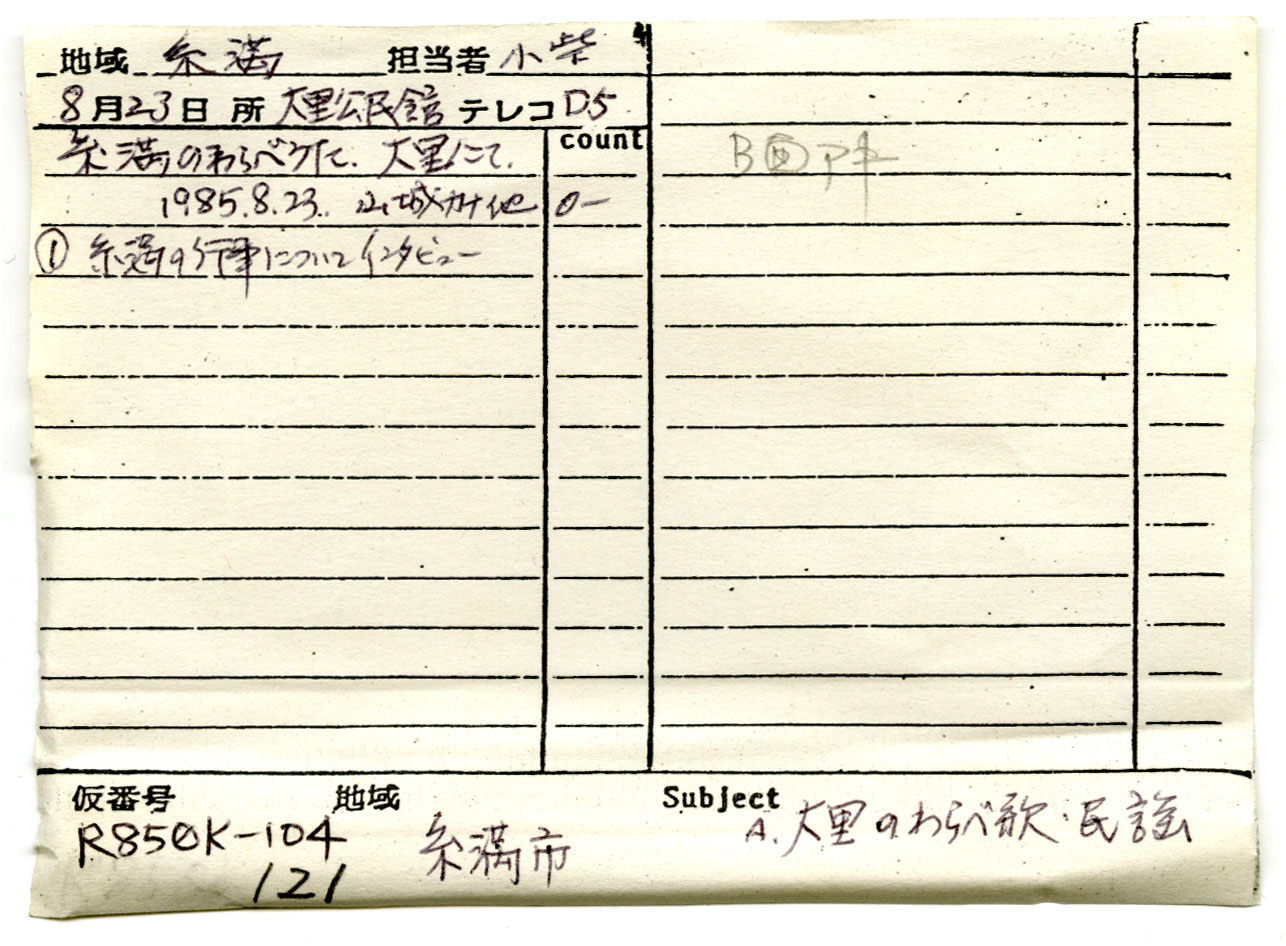 地域 糸満 担当者 小柴
8月23日 所 大里公民館 テレコ D5
糸満のわらべうた. 大里にて. count
1985.8.23. 山城カナ他 0−
① 糸満の行事についてインタビュー
B面アキ
仮番号 地域 Subject
R850K-104 糸満市 A. 大里のわらべ歌・民謡
121